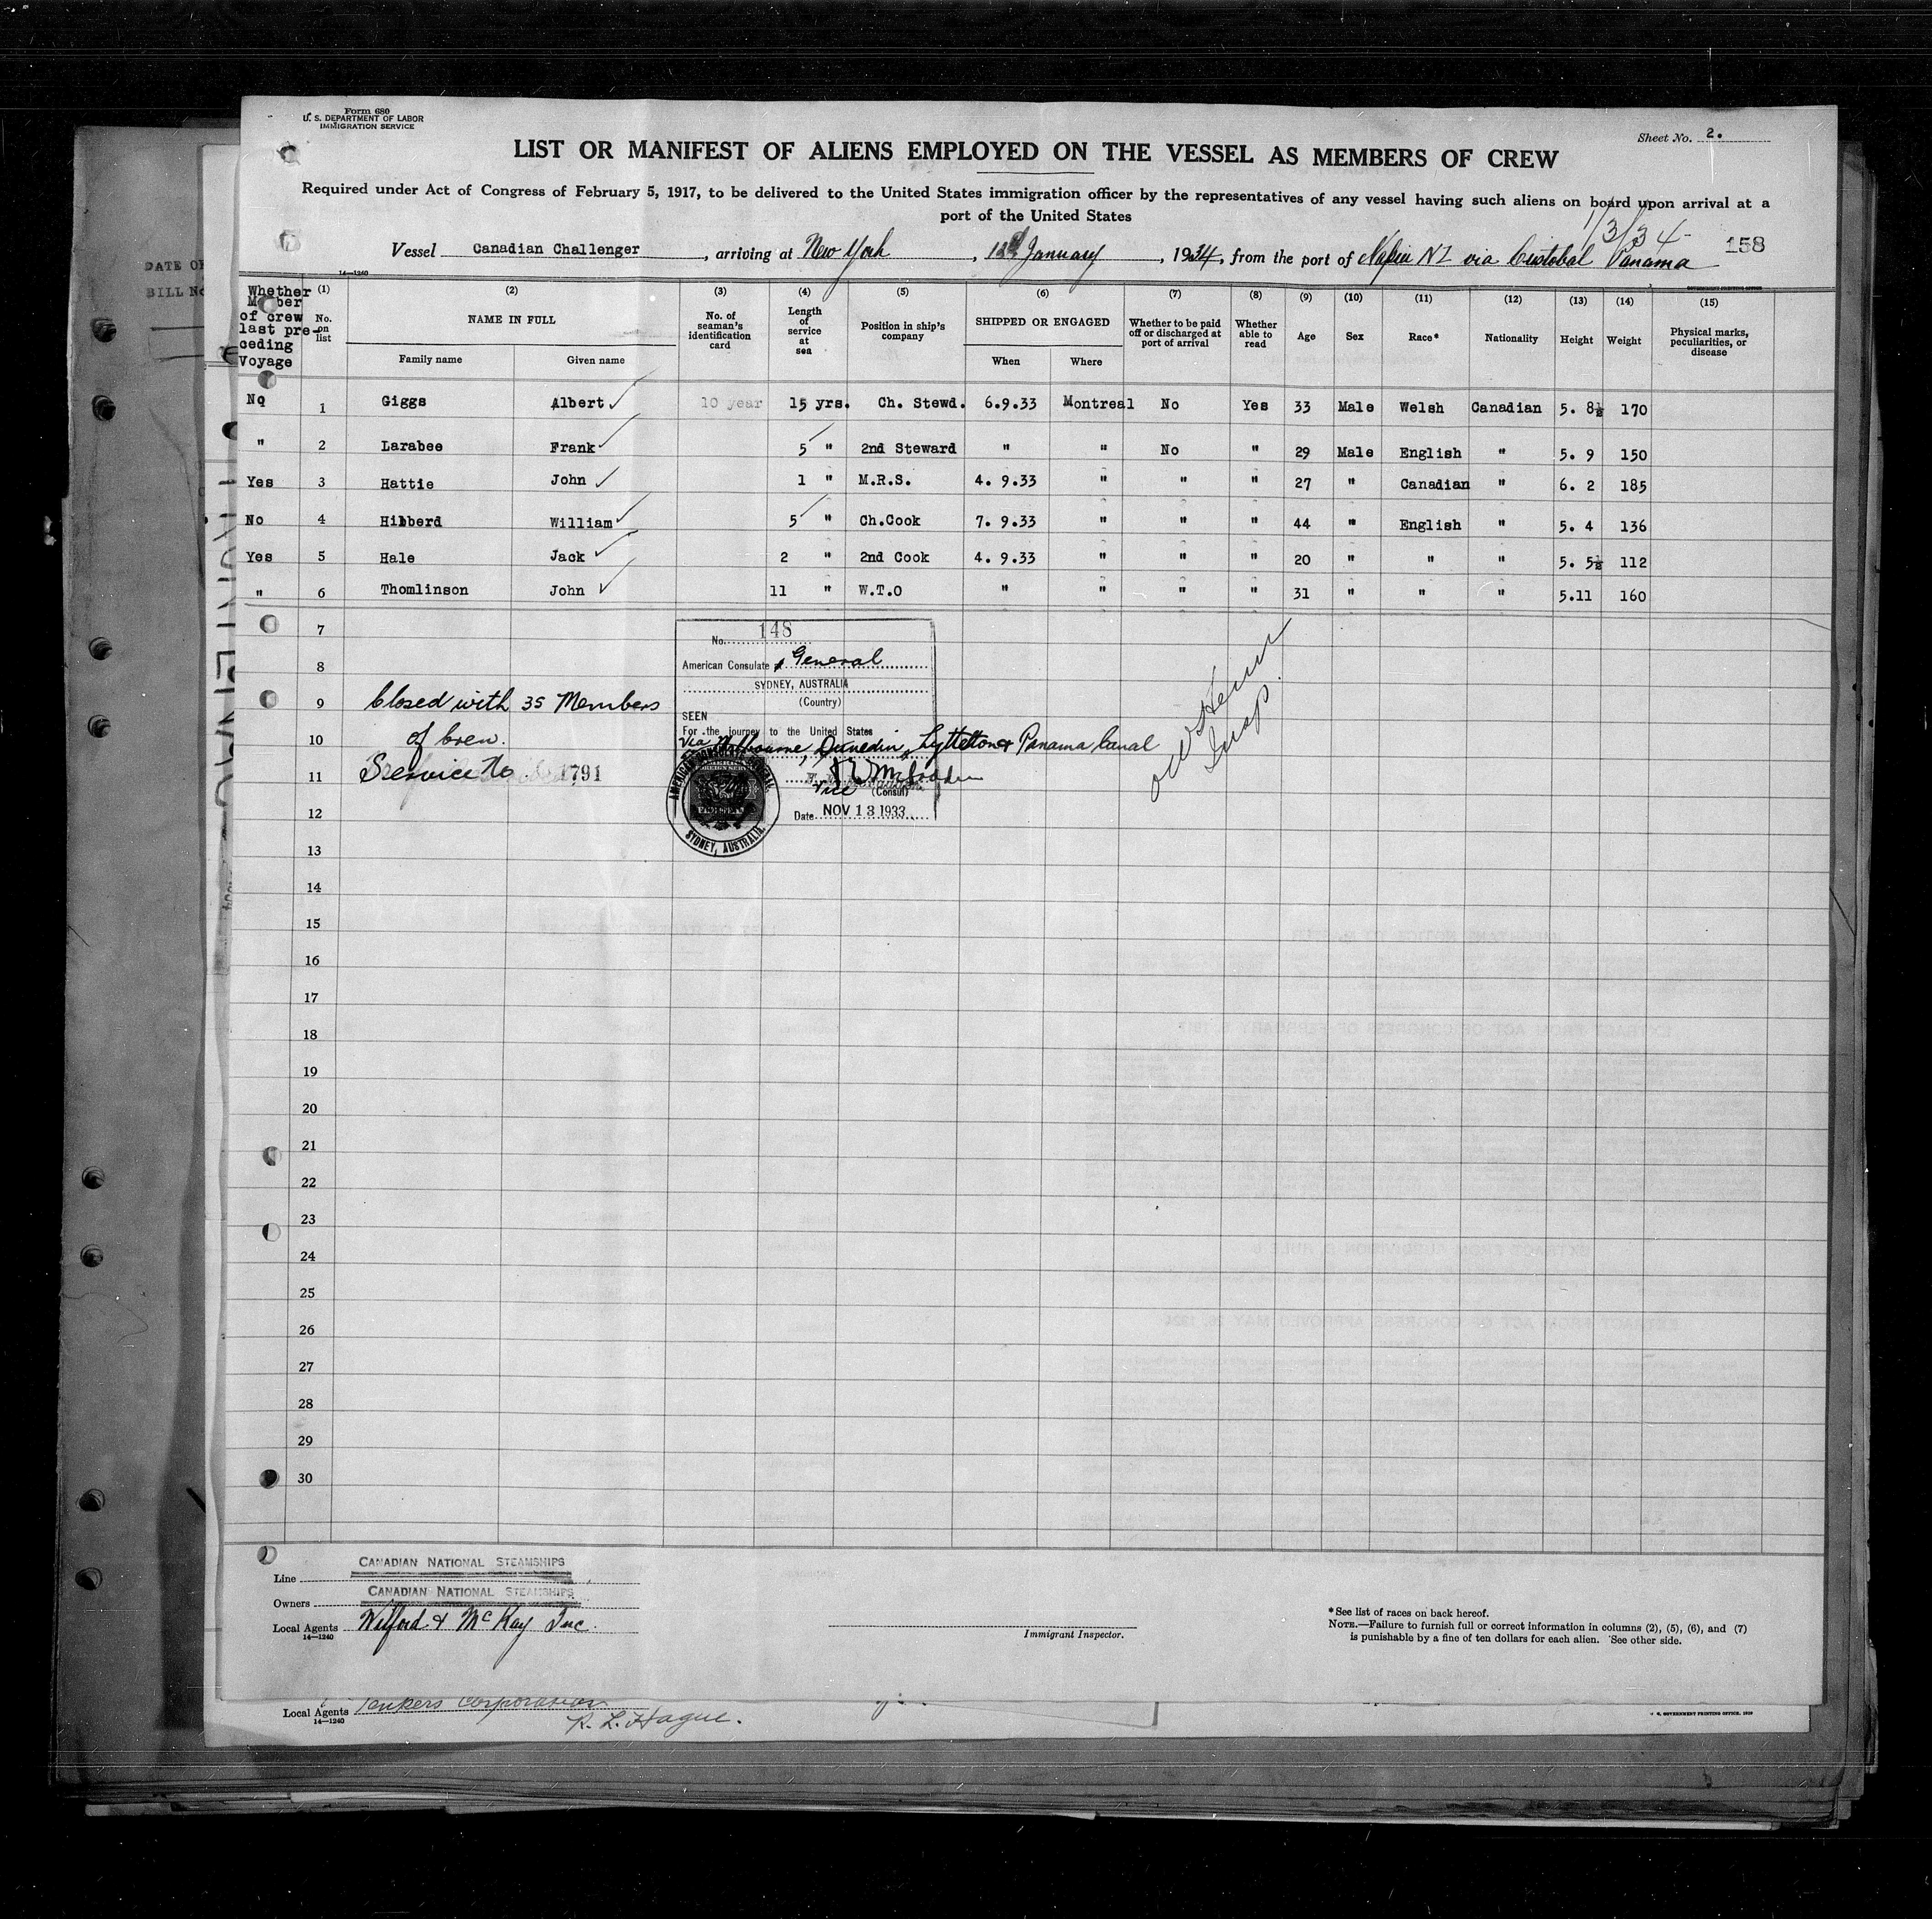 Form 680
U. S. DEPARTMENT OF LABOR
IMMIGRATION SERVICE
Sheet No. 2.
LIST OR MANIFEST OF ALIENS EMPLOYED ON THE VESSEL AS MEMBERS OF CREW
Required under Act of Congress of February 5, 1917, to be delivered to the United States immigration officer by the representatives of any vessel having such aliens on board upon arrival at a
port of the United States
1/3/34
158
Vessel Canadian Challenger, arriving at New York, January, 1934, from the port of Napier NZ via Cristobal Panama
14-1240
Whether Member of crew last pre-ceding Voyage (1) No. on list (2) NAME IN FULL Family name Given name (3) No. of seaman's identification card (4) Length of service at sea (5) Position in ship's company (6) SHIPPED OR ENGAGED When Where (7) Whether to be paid off or discharged at port of arrival (8) Whether able to read (9) Age (10) Sex (11) Race* (12) Nationality (13) Height (14) Weight (15) Physical marks, peculiarities, or disease
No 1 Giggs Albert 10 year 15 yrs. Ch. Stewd. 6.9.33 Montreal No Yes 33 Male Welsh Canadian 5. 8½ 170
" 2 Larabee Frank 5 " 2nd Steward " " No " 29 Male English " 5. 9 150
Yes 3 Hattie John 1 " M.R.S. 4. 9.33 " " " 27 " Canadian " 6. 2 185
No 4 Hibberd William 5 " Ch.Cook 7. 9.33 " " " 44 " English " 5. 4 136
Yes 5 Hale Jack 2 " 2nd Cook 4. 9.33 " " " 20 " " " 5. 5½ 112
" 6 Thomlinson John 11 " W.T.O " " " " 31 " " " 5.11 160
7
8
9
10
11
12
13
14
15
16
17
18
19
20
21
22
23
24
25
26
27
28
29
30
Closed with 35 Members
of Crew.
Service No. 1791
No. 148
American Consulate General
SYDNEY, AUSTRALIA
(Country)
SEEN
For the journey to the United States
via Melbourne, Dunedin, Lyttelton & Panama Canal
Vice (Consul)
Date NOV 13 1933
AMERICAN CONSULATE GENERAL
SYDNEY, AUSTRALIA.
Insp.
Line CANADIAN NATIONAL STEAMSHIPS
Owners CANADIAN NATIONAL STEAMSHIPS
Local Agents Welford & McKay Inc.
14-1240
Immigrant Inspector.
*See list of races on back hereof.
NOTE.—Failure to furnish full or correct information in columns (2), (5), (6), and (7)
is punishable by a fine of ten dollars for each alien. See other side.
Local Agents Tankers Corporation
14-1240
R. L. Hague.
DATE OF
BILL No